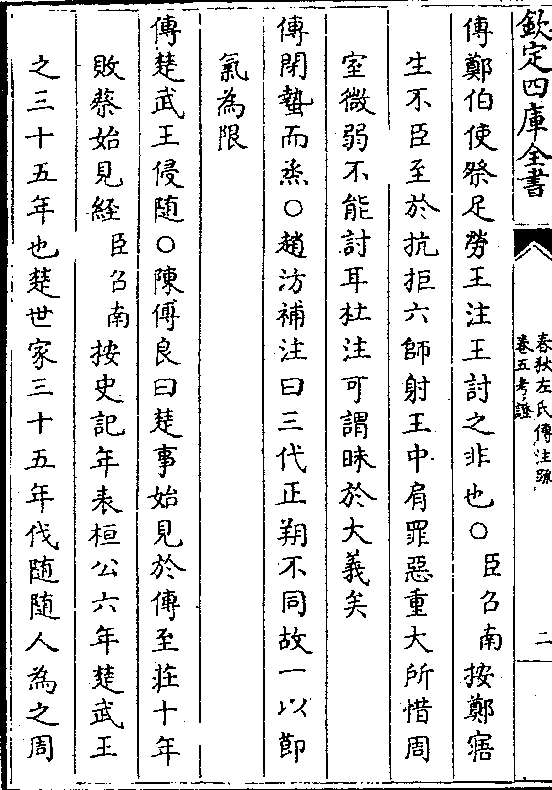 欽定四庫全書
春秋左氏傳注疏
卷五考證
二
傳鄭伯使祭足勞王注王討之非也○臣召南按鄭寤
生不臣至於抗拒六師射王中肩罪惡重大所惜周
室微弱不能討耳杜注可謂昧於大義矣
傳閉蟄而烝○趙汸補注曰三代正朔不同故一以節
氣為限
傳楚武王侵隨○陳傅良曰楚事始見於傳至莊十年
敗蔡始見經臣召南按史記年表桓公六年楚武王
之三十五年也楚世家三十五年伐随随人為之周